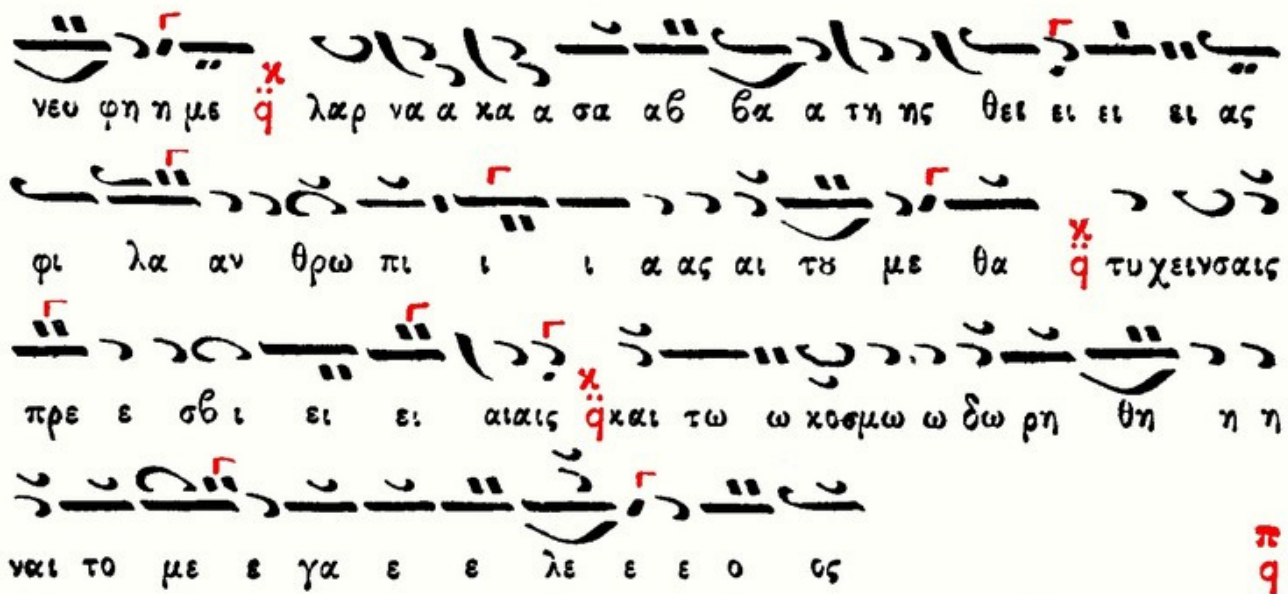 νευ φη η με q λαρ να α κα α σα αβ βα α τη ης θει ει ει ει ει ας
φι λα αν θρω πι ι ι α ας αι του με θα q τυ χειν σαις
πρε ε σβι ει ει αιαις q και τω ω κοσμω ω δω ρη θη η η
ναι το με ε γα ε ε λε ε ε ο ος π q